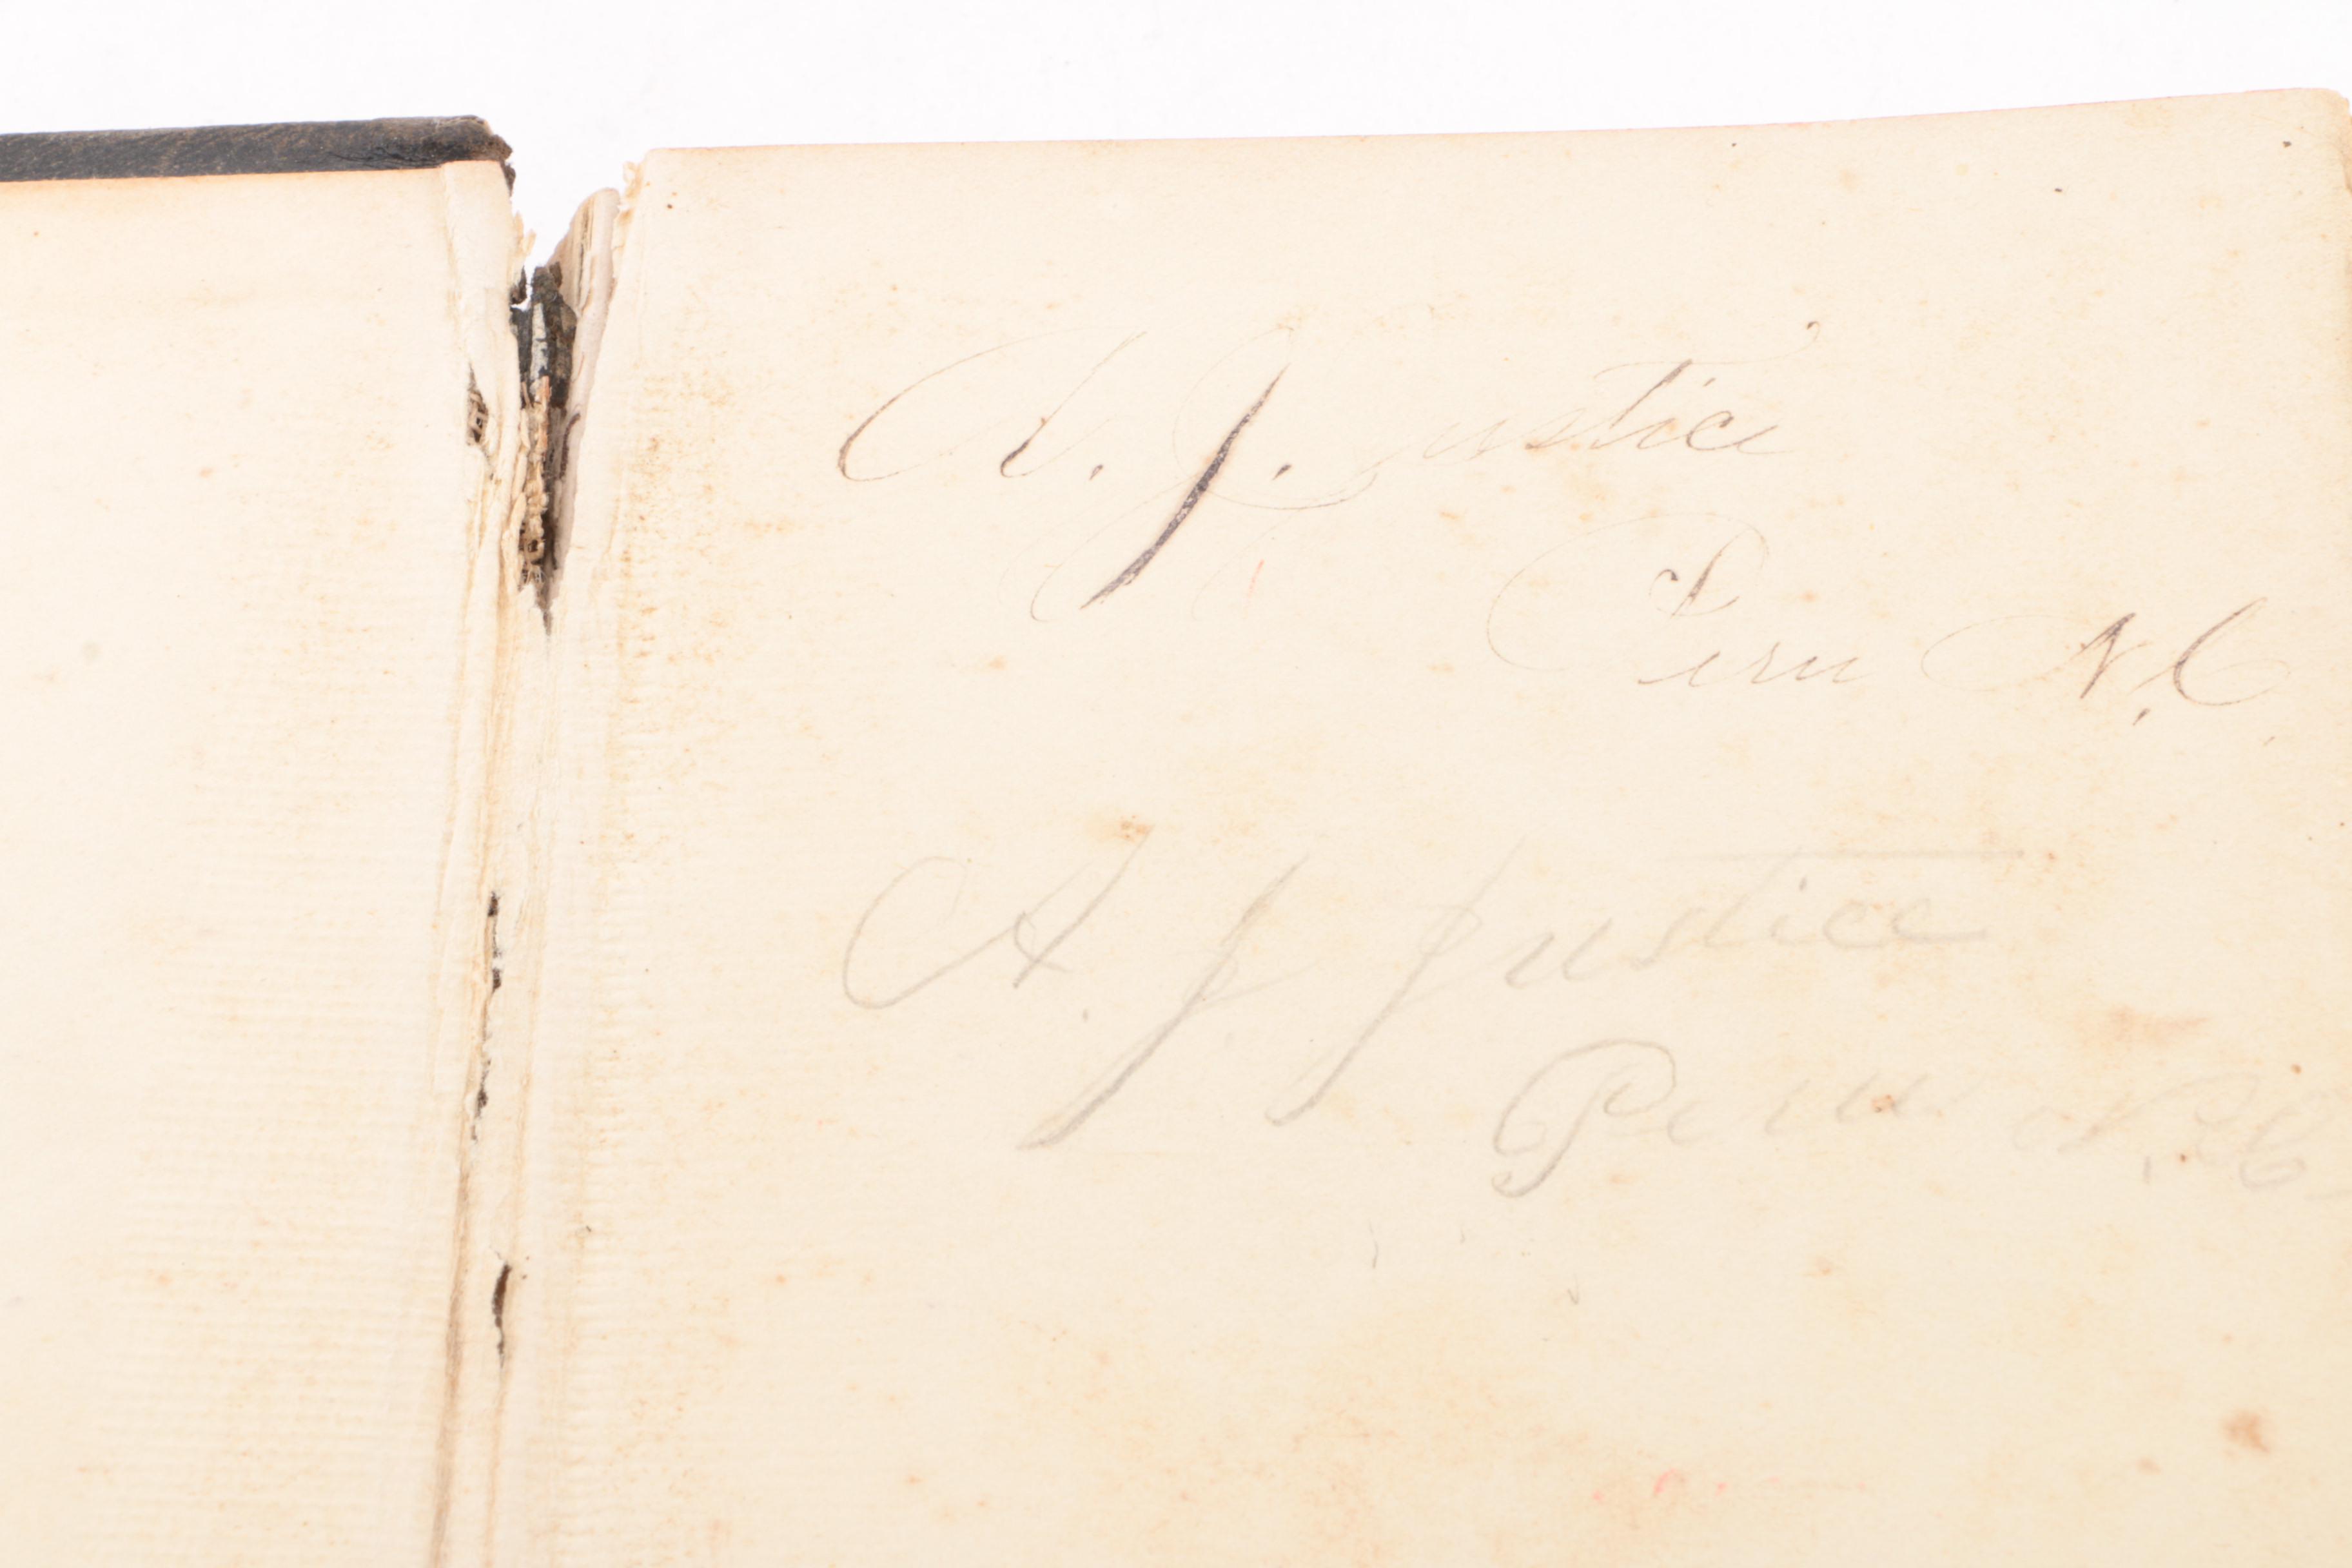 A. J. Justice
Peru N.C.
A. J. Justice
Peru N.C.